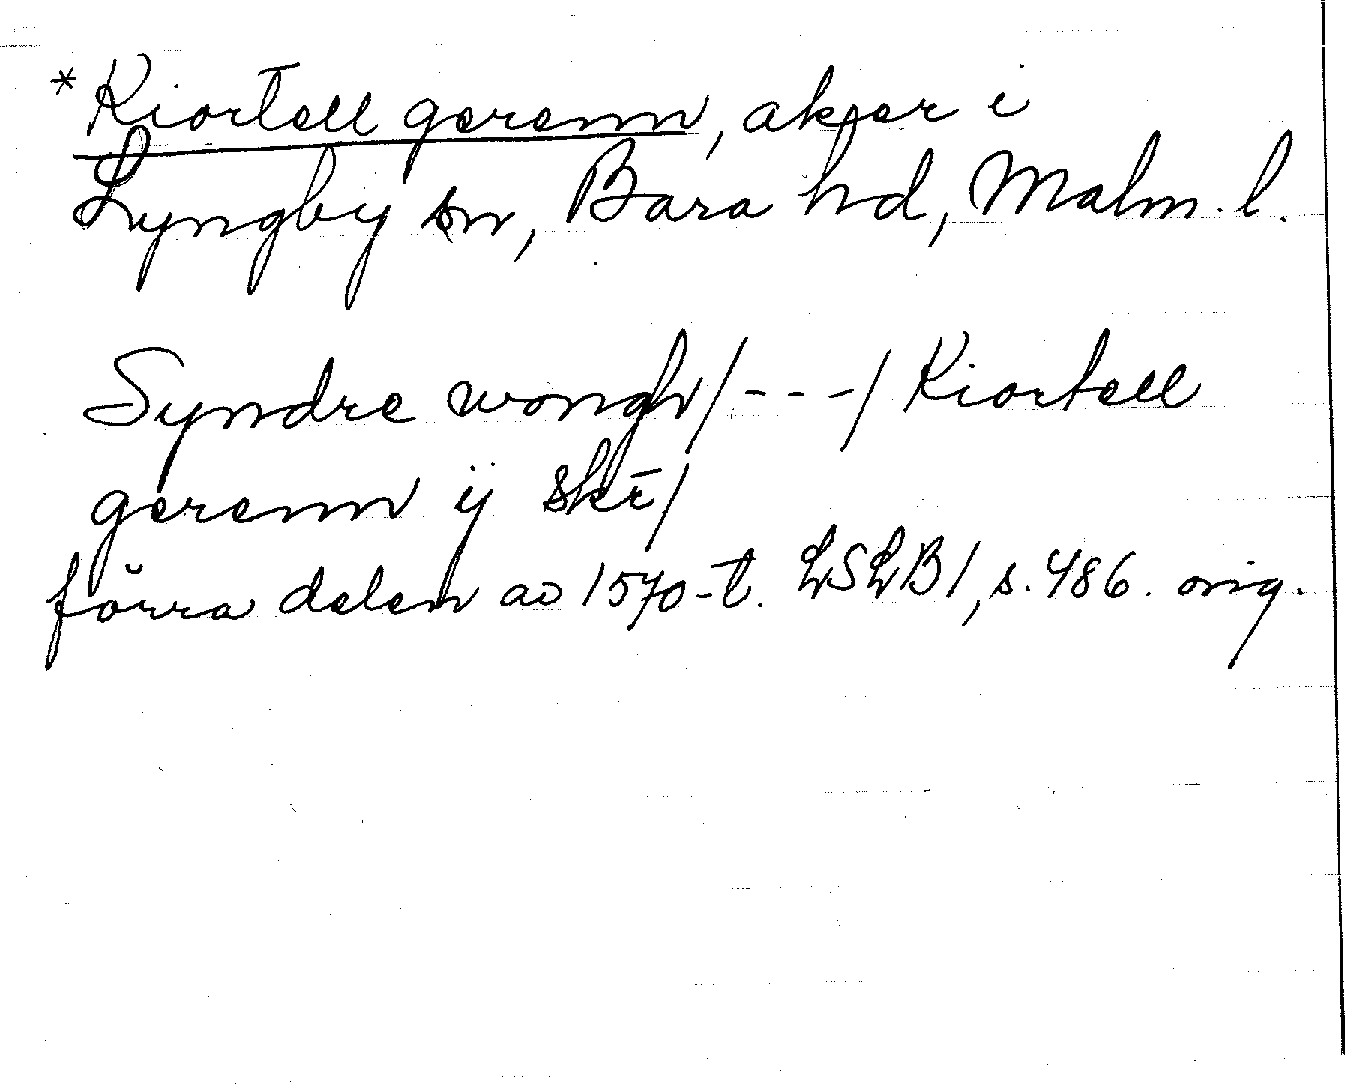 *Kiortell gerenn, akrer i
Lyngby sn, Bara hd, Malm. l.
Syndre wongh/---/Kiortell
gerenn ij skē/
förra delen av 1570-t. LSLB1, s. 486. orig.